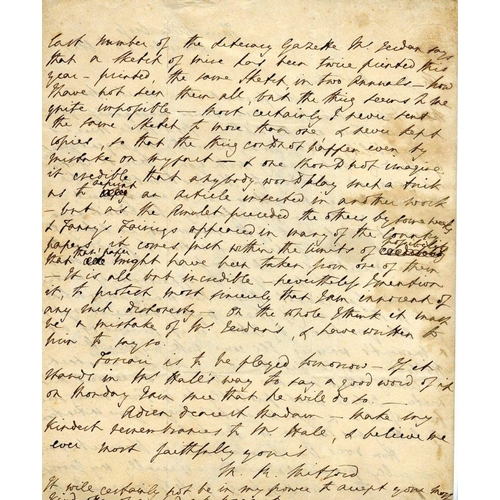 last number of the Literary Gazette Mr. Jerdan says
that a sketch of mine has been twice printed this
year – printed, the same sketch, in two Annuals – now
I have not seen them all, but the thing seems to me
quite impossible – most certainly I never sent
the same sketch to more than one & never kept
copies, so that the thing co.d not happen even by
mistake on my part – & one sho.d not imagine
it credible that anybody wo.d play such a trick
as to reprint an article inserted in another work
– but as the Amulet preceded the others by some weeks
& Fanny's Fairings appeared in many of the country
papers, it comes just within the limits of possibility
that that paper might have been taken from one of them
– It is all but incredible – nevertheless I mention
it, to protest most sincerely that I am innocent of
any such dishonesty – on the whole I think it must
be a mistake of Mr. Jerdan's, & have written to
him to say so.
Foscari is to be played tomorrow – If it
stands in Mr Hall's way to say a good word of it
on Monday I am sure that he will do so –
Adieu dearest Madam – make my
kindest remembrances to Mr. Hall, & believe me
ever most faithfully yours
M. R. Mitford
It will certainly not be in my power to accept your most
kind